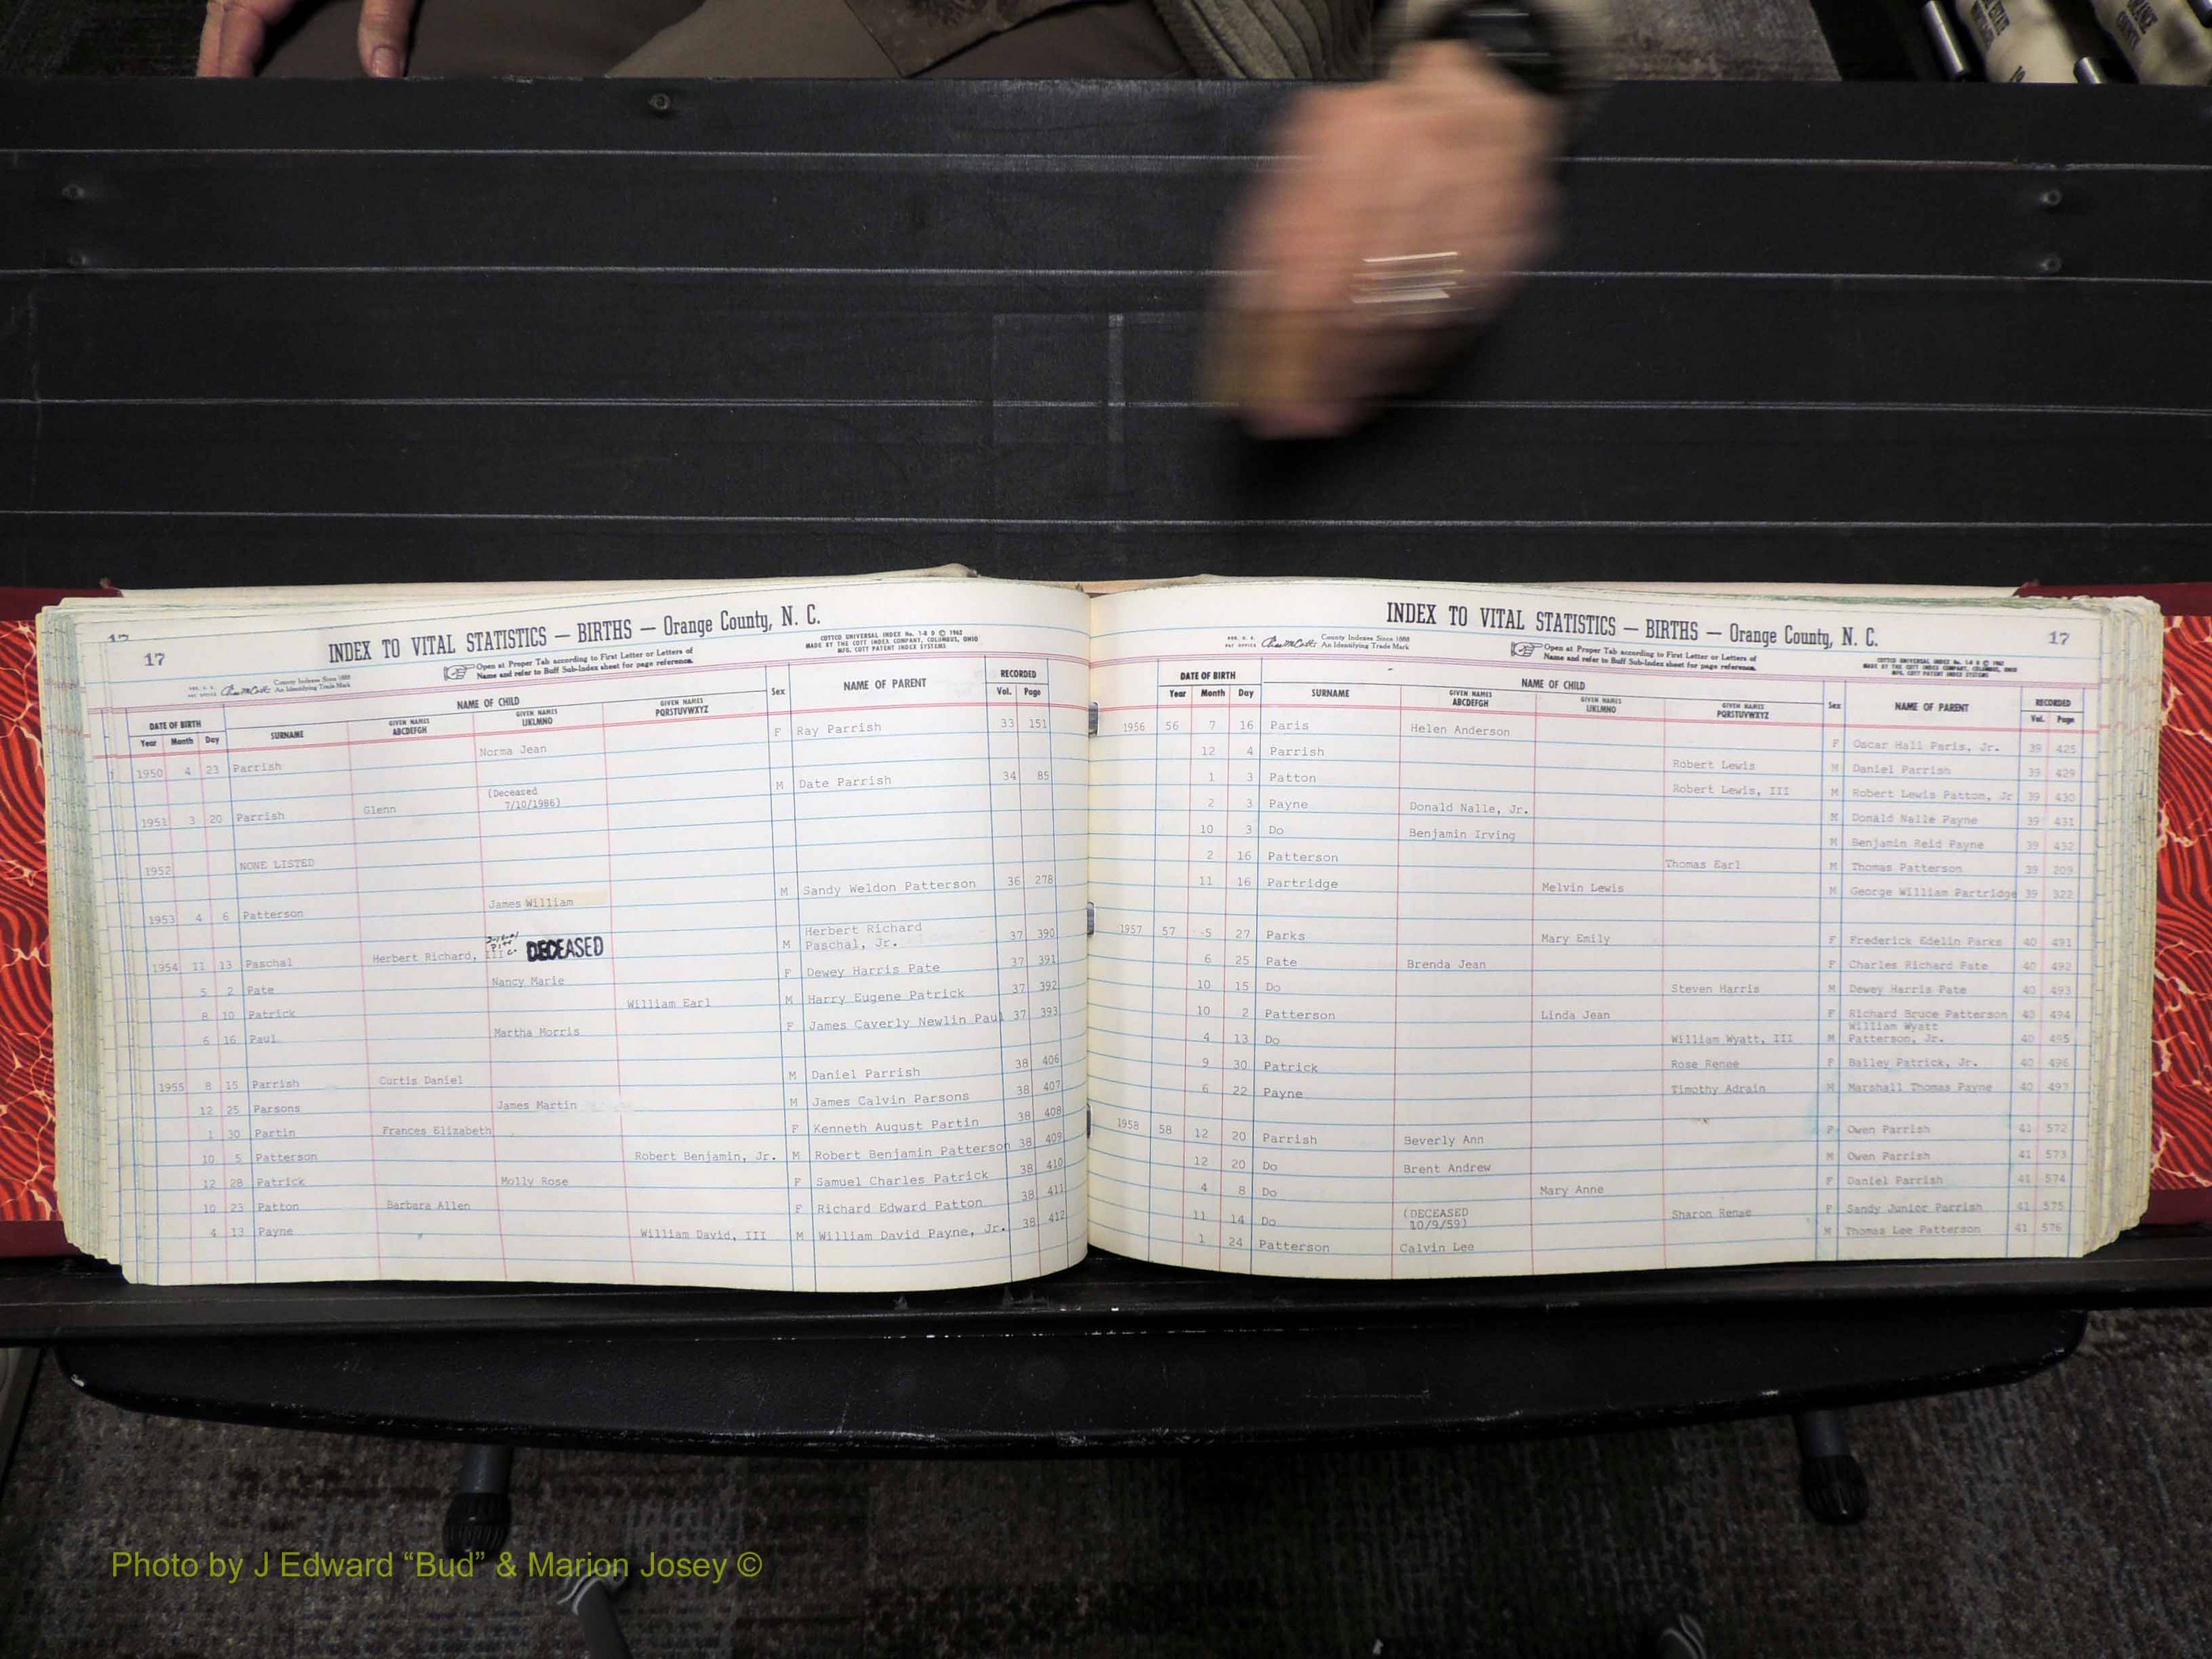 17
INDEX TO VITAL STATISTICS — BIRTHS — Orange County, N. C.
Open at Proper Tab according to First Letter or Letters of
Name and refer to Buff Sub-Index sheet for page reference.
COTTCO UNIVERSAL INDEX No. 1-8 D © 1962
MADE BY THE COTT INDEX COMPANY, COLUMBUS, OHIO
MFG. COTT PATENT INDEX SYSTEMS
County Indexes Since 1888
An Identifying Trade Mark
DATE OF BIRTH NAME OF CHILD Sex NAME OF PARENT RECORDED
Year Month Day SURNAME GIVEN NAMES ABCDEFGH GIVEN NAMES IJKLMNO GIVEN NAMES PQRSTUVWXYZ Vol. Page
1950 4 23 Parrish Norma Jean F Ray Parrish 33 151
1951 3 20 Parrish Glenn (Deceased 7/10/1986) M Date Parrish 34 85
1952 NONE LISTED
1953 4 6 Patterson James William M Sandy Weldon Patterson 36 278
1954 11 13 Paschal Herbert Richard, III DECEASED M Herbert Richard Paschal, Jr. 37 390
5 2 Pate Nancy Marie F Dewey Harris Pate 37 391
8 10 Patrick William Earl M Harry Eugene Patrick 37 392
6 16 Paul Martha Morris F James Caverly Newlin Paul 37 393
1955 8 15 Parrish Curtis Daniel M Daniel Parrish 38 406
12 25 Parsons James Martin M James Calvin Parsons 38 407
1 30 Partin Frances Elizabeth F Kenneth August Partin 38 408
10 5 Patterson Robert Benjamin, Jr. M Robert Benjamin Patterson 38 409
12 28 Patrick Molly Rose F Samuel Charles Patrick 38 410
10 23 Patton Barbara Allen F Richard Edward Patton 38 411
4 13 Payne William David, III M William David Payne, Jr. 38 412
INDEX TO VITAL STATISTICS — BIRTHS — Orange County, N. C.
17
County Indexes Since 1888
An Identifying Trade Mark
Open at Proper Tab according to First Letter or Letters of
Name and refer to Buff Sub-Index sheet for page reference.
COTTCO UNIVERSAL INDEX No. 1-8 D © 1962
MADE BY THE COTT INDEX COMPANY, COLUMBUS, OHIO
MFG. COTT PATENT INDEX SYSTEMS
DATE OF BIRTH NAME OF CHILD Sex NAME OF PARENT RECORDED
Year Month Day SURNAME GIVEN NAMES ABCDEFGH GIVEN NAMES IJKLMNO GIVEN NAMES PQRSTUVWXYZ Vol. Page
1956 56 7 16 Paris Helen Anderson F Oscar Hall Paris, Jr. 39 425
12 4 Parrish Robert Lewis M Daniel Parrish 39 429
1 3 Patton Robert Lewis, III M Robert Lewis Patton, Jr 39 430
2 3 Payne Donald Nalle, Jr. M Donald Nalle Payne 39 431
10 3 Do Benjamin Irving M Benjamin Reid Payne 39 432
2 16 Patterson Thomas Earl M Thomas Patterson 39 209
11 16 Partridge Melvin Lewis M George William Partridge 39 322
1957 57 5 27 Parks Mary Emily F Frederick Edelin Parks 40 491
6 25 Pate Brenda Jean F Charles Richard Pate 40 492
10 15 Do Steven Harris M Dewey Harris Pate 40 493
10 2 Patterson Linda Jean F Richard Bruce Patterson 40 494
4 13 Do William Wyatt, III M William Wyatt Patterson, Jr. 40 495
9 30 Patrick Rose Renee F Bailey Patrick, Jr. 40 496
6 22 Payne Timothy Adrain M Marshall Thomas Payne 40 497
1958 58 12 20 Parrish Beverly Ann F Owen Parrish 41 572
12 20 Do Brent Andrew M Owen Parrish 41 573
4 8 Do Mary Anne F Daniel Parrish 41 574
11 14 Do (DECEASED 10/9/59) Sharon Renae F Sandy Junior Parrish 41 575
1 24 Patterson Calvin Lee M Thomas Lee Patterson 41 576
Photo by J Edward “Bud” & Marion Josey ©